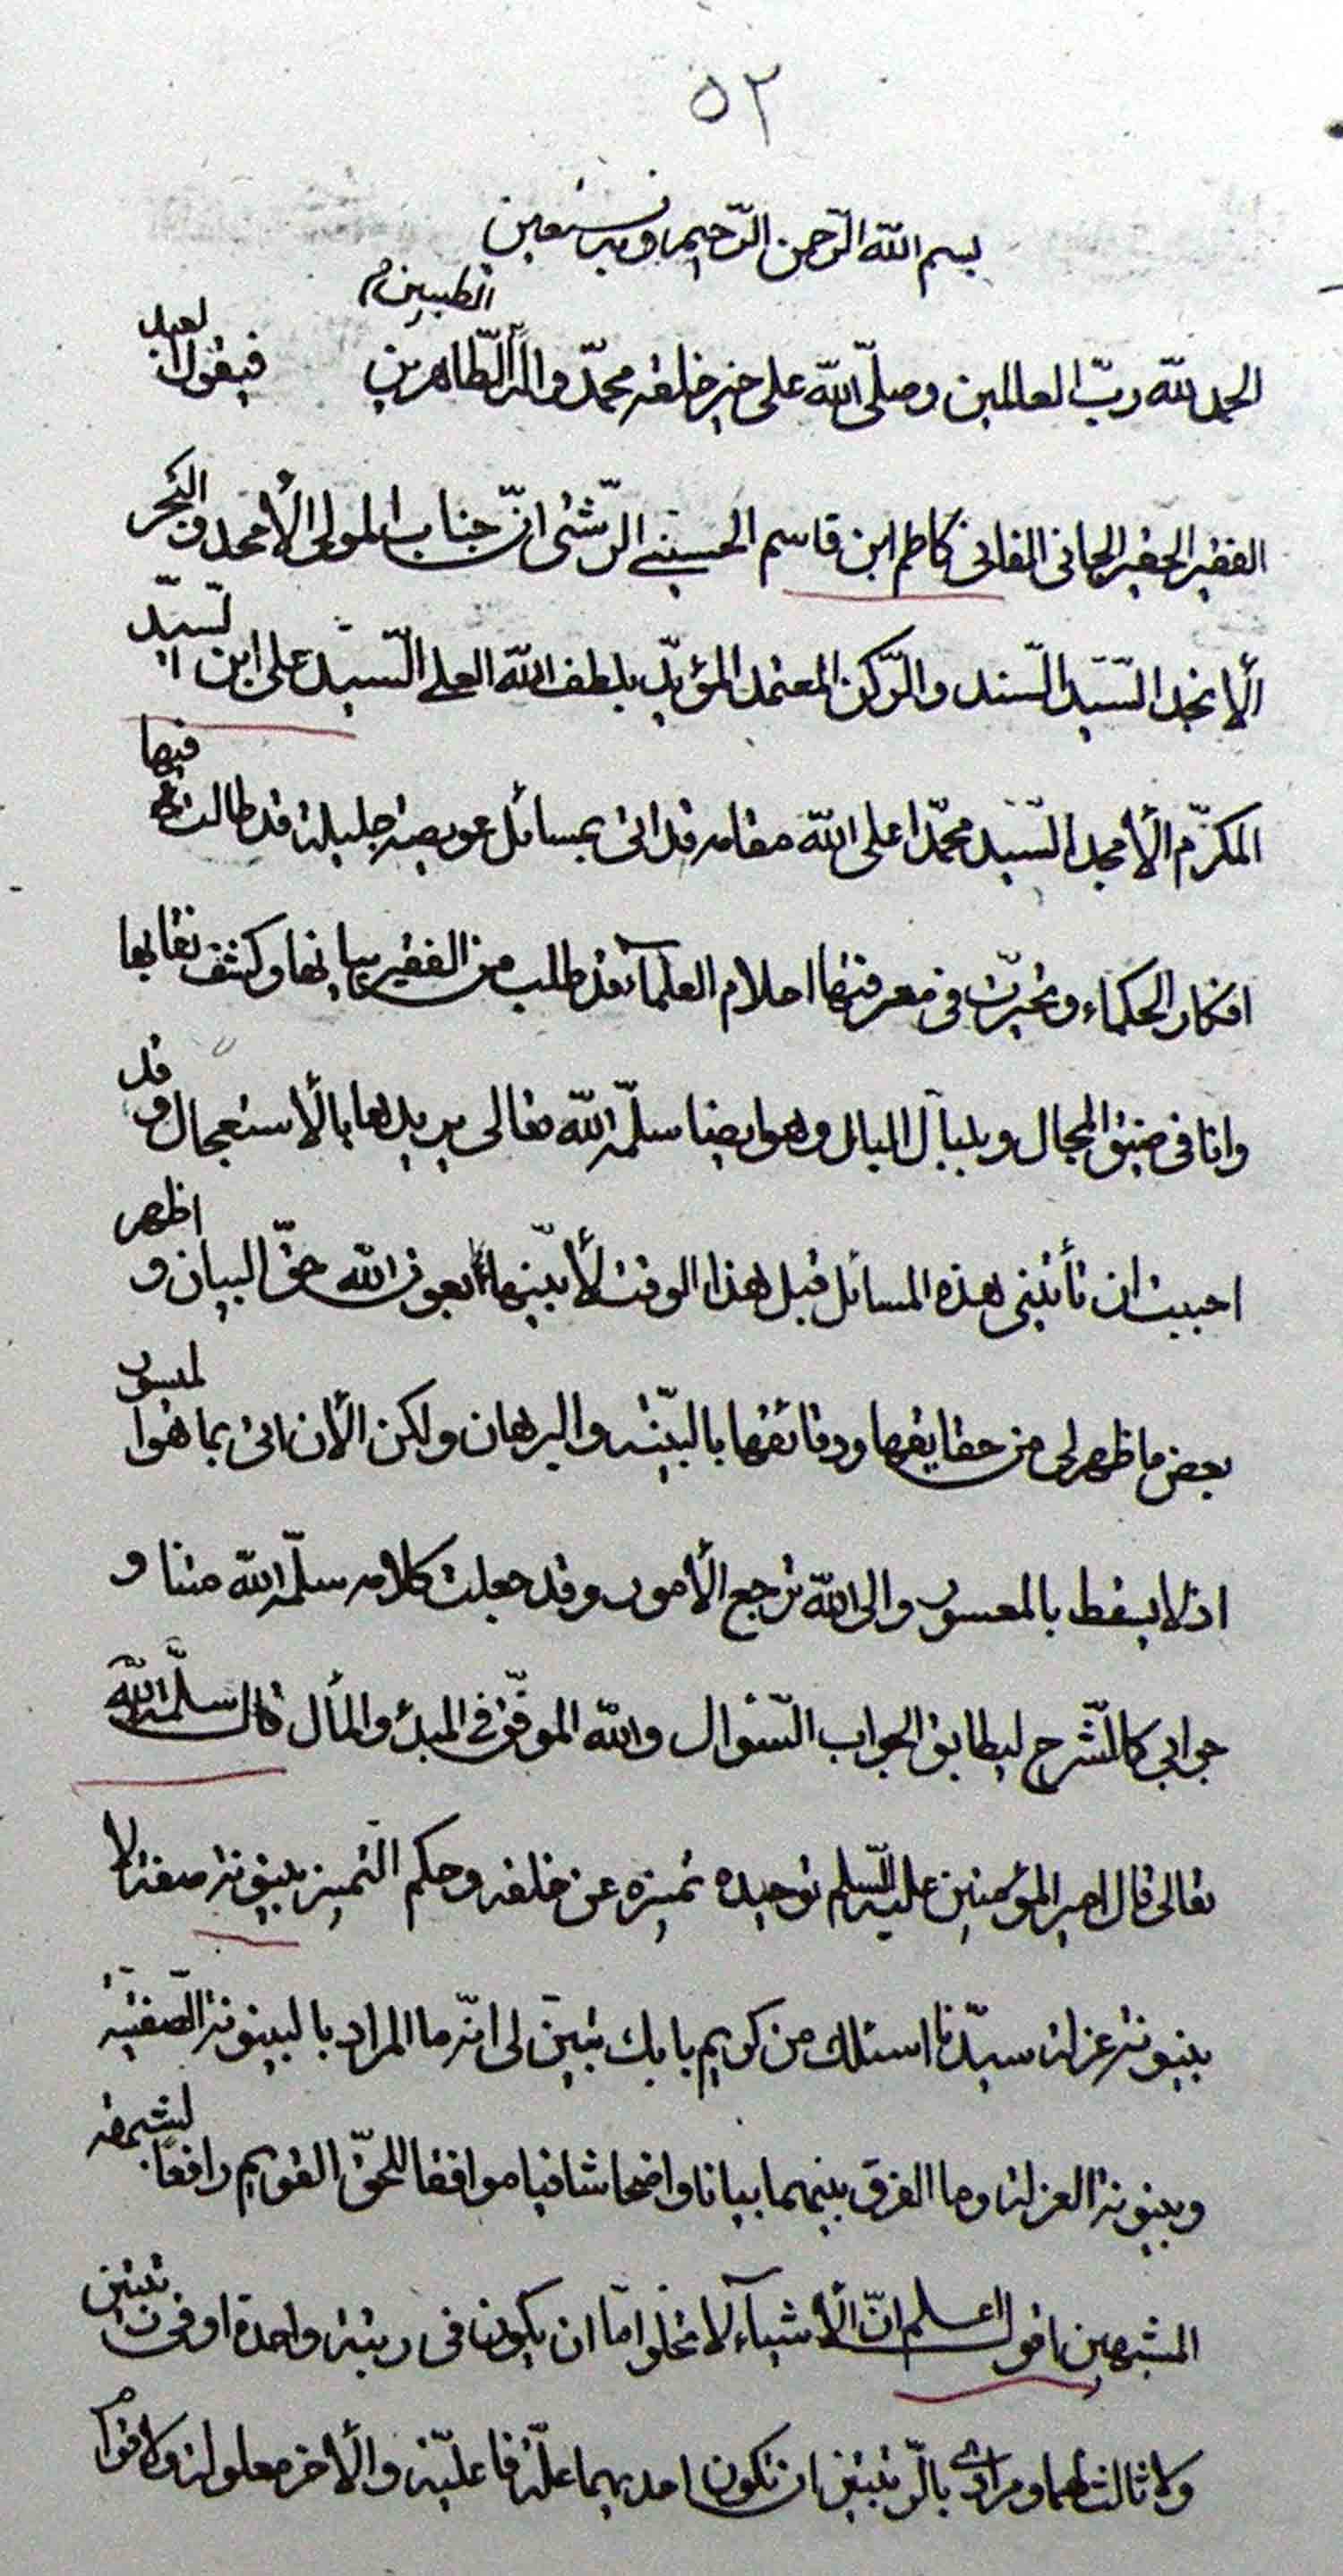 ٥٢
بسم الله الرّحمن الرّحيم وبه نستعين
الحمد لله ربّ العالمين وصلّى الله على خير خلقه محمّد واله الطّيبين الطّاهرين فيقول العبد
الفقير الحقير الجاني الفاني كاظم ابن قاسم الحسيني الرّشتى انّ جناب المولى الأمجد والبحر
الأنجد السّيّد السّند والرّكن المعتمد المؤيّد بلطف الله العلي السّيّد على ابن السّيّد
المكرّم الأمجد السّيّد محمّد اعلى الله مقامه قد اتى بمسائل عويصة جليلة قد طالت فيها
افكار الحكماء وتحيّرت في معرفتها احلام العلمآء قد طلب من الفقير بيانها وكشف نقابها
وانا في ضيق المجال وبلبال البال وهو ايضا سلّمه الله تعالى يريدها بالأستعجال وقد
احببت ان تأتينى هذه المسائل قبل هذا الوقت لأبيّنها بعون الله حقّ البيان و اظهر
بعض ما ظهر لى من حقايقها ودقائقها بالبيّنة والبرهان ولكن الأن اتى بما هو الميسور
اذ لا يسقط بالمعسور والى الله ترجع الأمور وقد جعلت كلامه سلّمه الله متنا و
جوابي كالشّرح ليطابق الجواب السّئوال والله الموفّق في المبدء والمأل قال سلّمه الله
تعالى قال امير المؤمنين عليه السّلم توحيده تميزه عن خلقه وحكم التّميز بينونة صفة لا
بينونة عزلة سيّدنا اسئلك من كريم بابك تبيّن لى انّه ما المراد بالبينونة الصّفتيّة
وبينونة العزلة وما الفرق بينهما بيانا واضحا شافيا موافقا للحقّ القويم رافعا لشبهة
المشبهين اقول اعلم انّ الأشيآء لا تخلوا امّا ان يكون في رتبة واحدة او في رتبتين
ولا ثالث لهما ومرادى بالرّتبتين ان تكون احديهما علّة فاعليّة والأخر معلولة ولا قوام